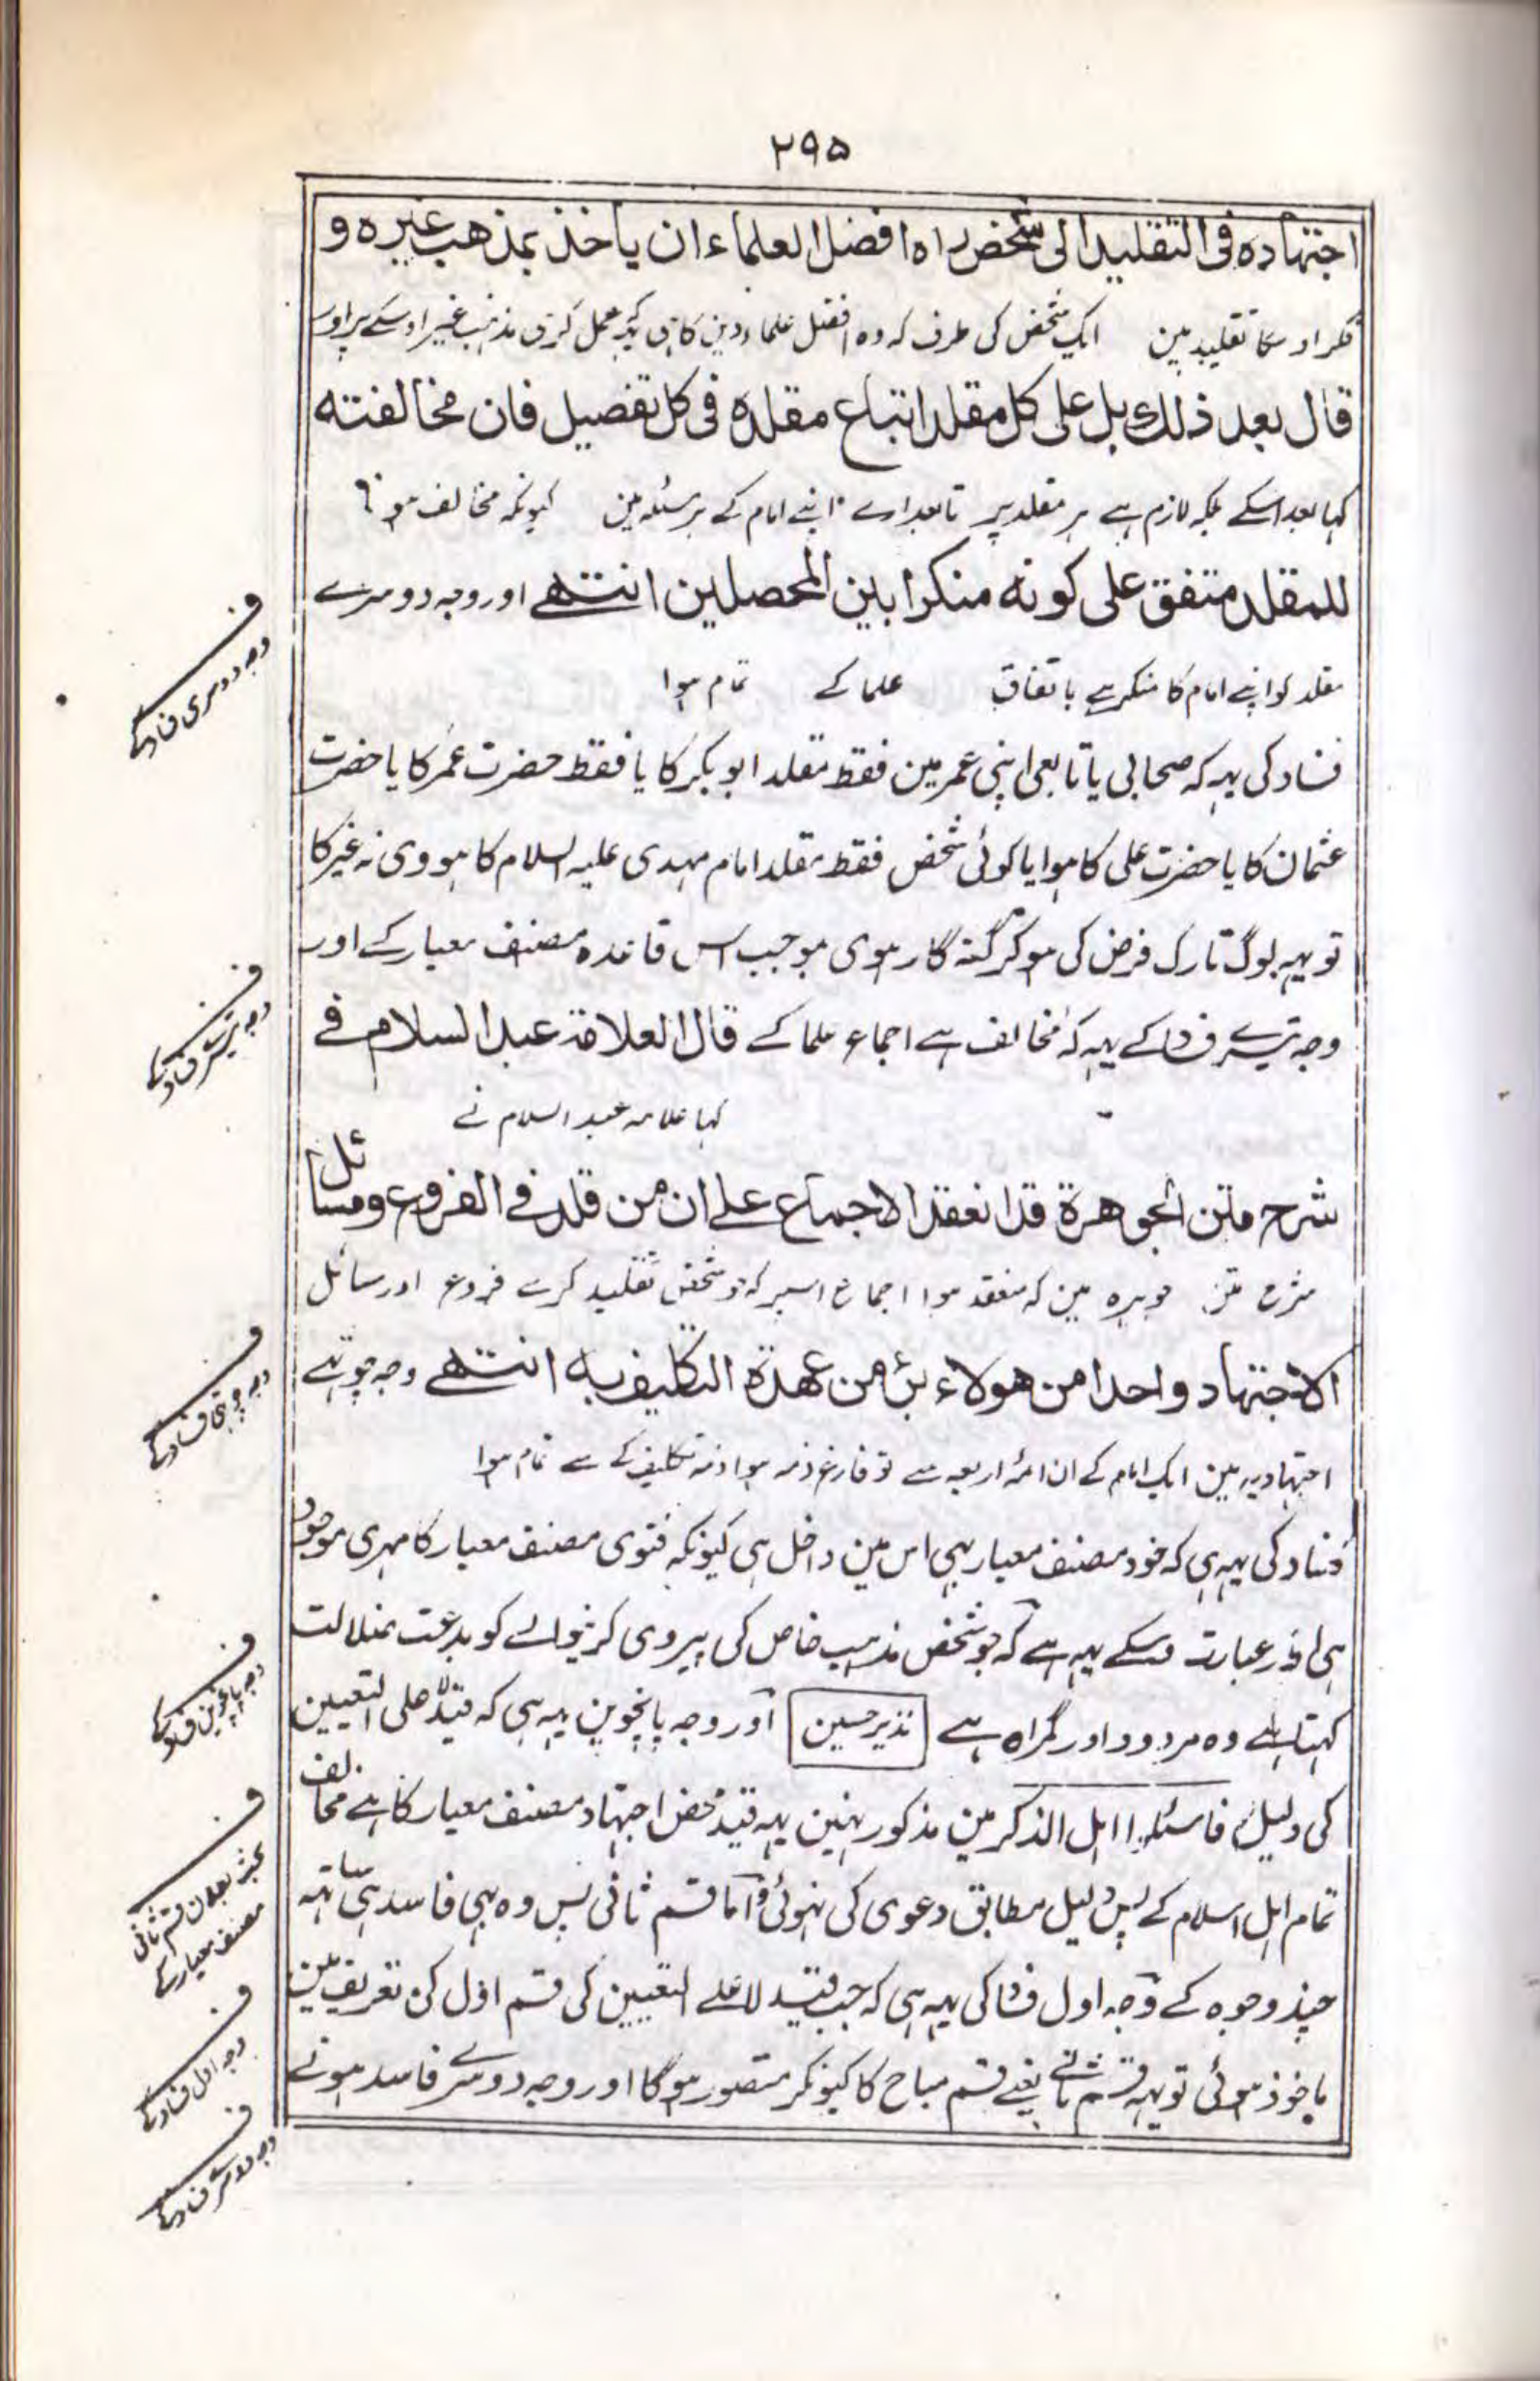 ٢٩٥
اجتهاده فى التقليد الى شخص راه افضل العلماء ان ياخذ بمذهب غيره و
فکر اوسکا تقلید مین ایک شخص کی طرف کہ وہ افضل علماء دین کا ہی یہہ عمل کری مذہب غیر اوسکے پر اور
قال بعد ذلك بل على كل مقلد اتباع مقلده فى كل تفصيل فان مخالفته
کہا بعد اسکے بلکہ لازم ہے ہر مقلد پر تابعداری اپنے امام کے ہر مسئلہ مین کیونکہ مخالف ہونا
للمقلد متفق على كونه منكرا بين المحصلين انتهے اور وجہ دوسرے
مقلد کو اپنے امام کا منکر ہے باتفاق علما کے تمام ہوا
فساد کی یہہ کہ صحابی یا تابعی اپنی عمر مین فقط مقلد ابو بکر کا یا فقط حضرت عمر کا یا حضرت
عثمان کا یا حضرت علی کا ہوا یا کوئی شخص فقط مقلد امام مہدی علیہ السلام کا ہووی نہ غیر کا
تو یہہ لوگ تارک فرض کی ہو کر گنہ گار ہوی موجب اس قاعدہ مصنف معیار کے اور
وجہ تیسرے فساد کے یہہ کہ مخالف ہے اجماع علما کے قال العلامة عبد السلام فے
کہا علامہ عبد السلام نے
شرح متن الجوهرة قد انعقد الاجماع علے ان من قلد فے الفروع ومسائل
شرح متن جوہرہ مین کہ منعقد ہوا اجماع اسپر کہ جو شخص تقلید کرے فروع اور مسائل
الاجتهاد واحدا من هولاء برئ من عهدة التكليف به انتهے وجہ چوتہے
اجتہادیہ مین ایک امام کے ان ائمہ اربعہ سے تو فارغ ذمہ ہوا ذمہ تکلیف کے سے تمام ہوا
فساد کی یہہ ہی کہ خود مصنف معیار بہی اس مین داخل ہی کیونکہ فتوی مصنف معیار کا مہری موجود
ہی اور عبارت اوسکے یہہ ہے کہ جو شخص مذہب خاص کی پیروی کرنیوالے کو بدعت ضلالت
کہتا ہے وہ مردود اور گمراہ ہے نذیر حسین اور وجہ پانچوین یہہ ہی کہ قید لا علی التعیین
کی دلیل فاسئلوا اہل الذکر مین مذکور نہین یہہ قید محض اجتہاد مصنف معیار کا ہے مخالف
تمام اہل اسلام کے پس دلیل مطابق دعوی کی نہوئی واما قسم ثانی پس وہ بہی فاسد ہی ساتہہ
چند وجوہ کے وجہ اول فساد کی یہہ ہی کہ جب قید لا علے التعیین کی قسم اول کی تعریف مین
ماخوذ ہوئی تو یہہ قسم ثانے یعنے قسم مباح کا کیونکر متصور ہوگا اور وجہ دوسرے فاسد ہونے
ف
وجہ دوسری فساد کے
ف
وجہ تیسرے فساد کے
ف
وجہ چوتہی فساد کے
ف
وجہ پانچوین فساد کے
ف
بحث بطلان قسم ثانی
مصنف معیار کے
ف
وجہ اول فساد کے
ف
وجہ دوسرے فساد کے